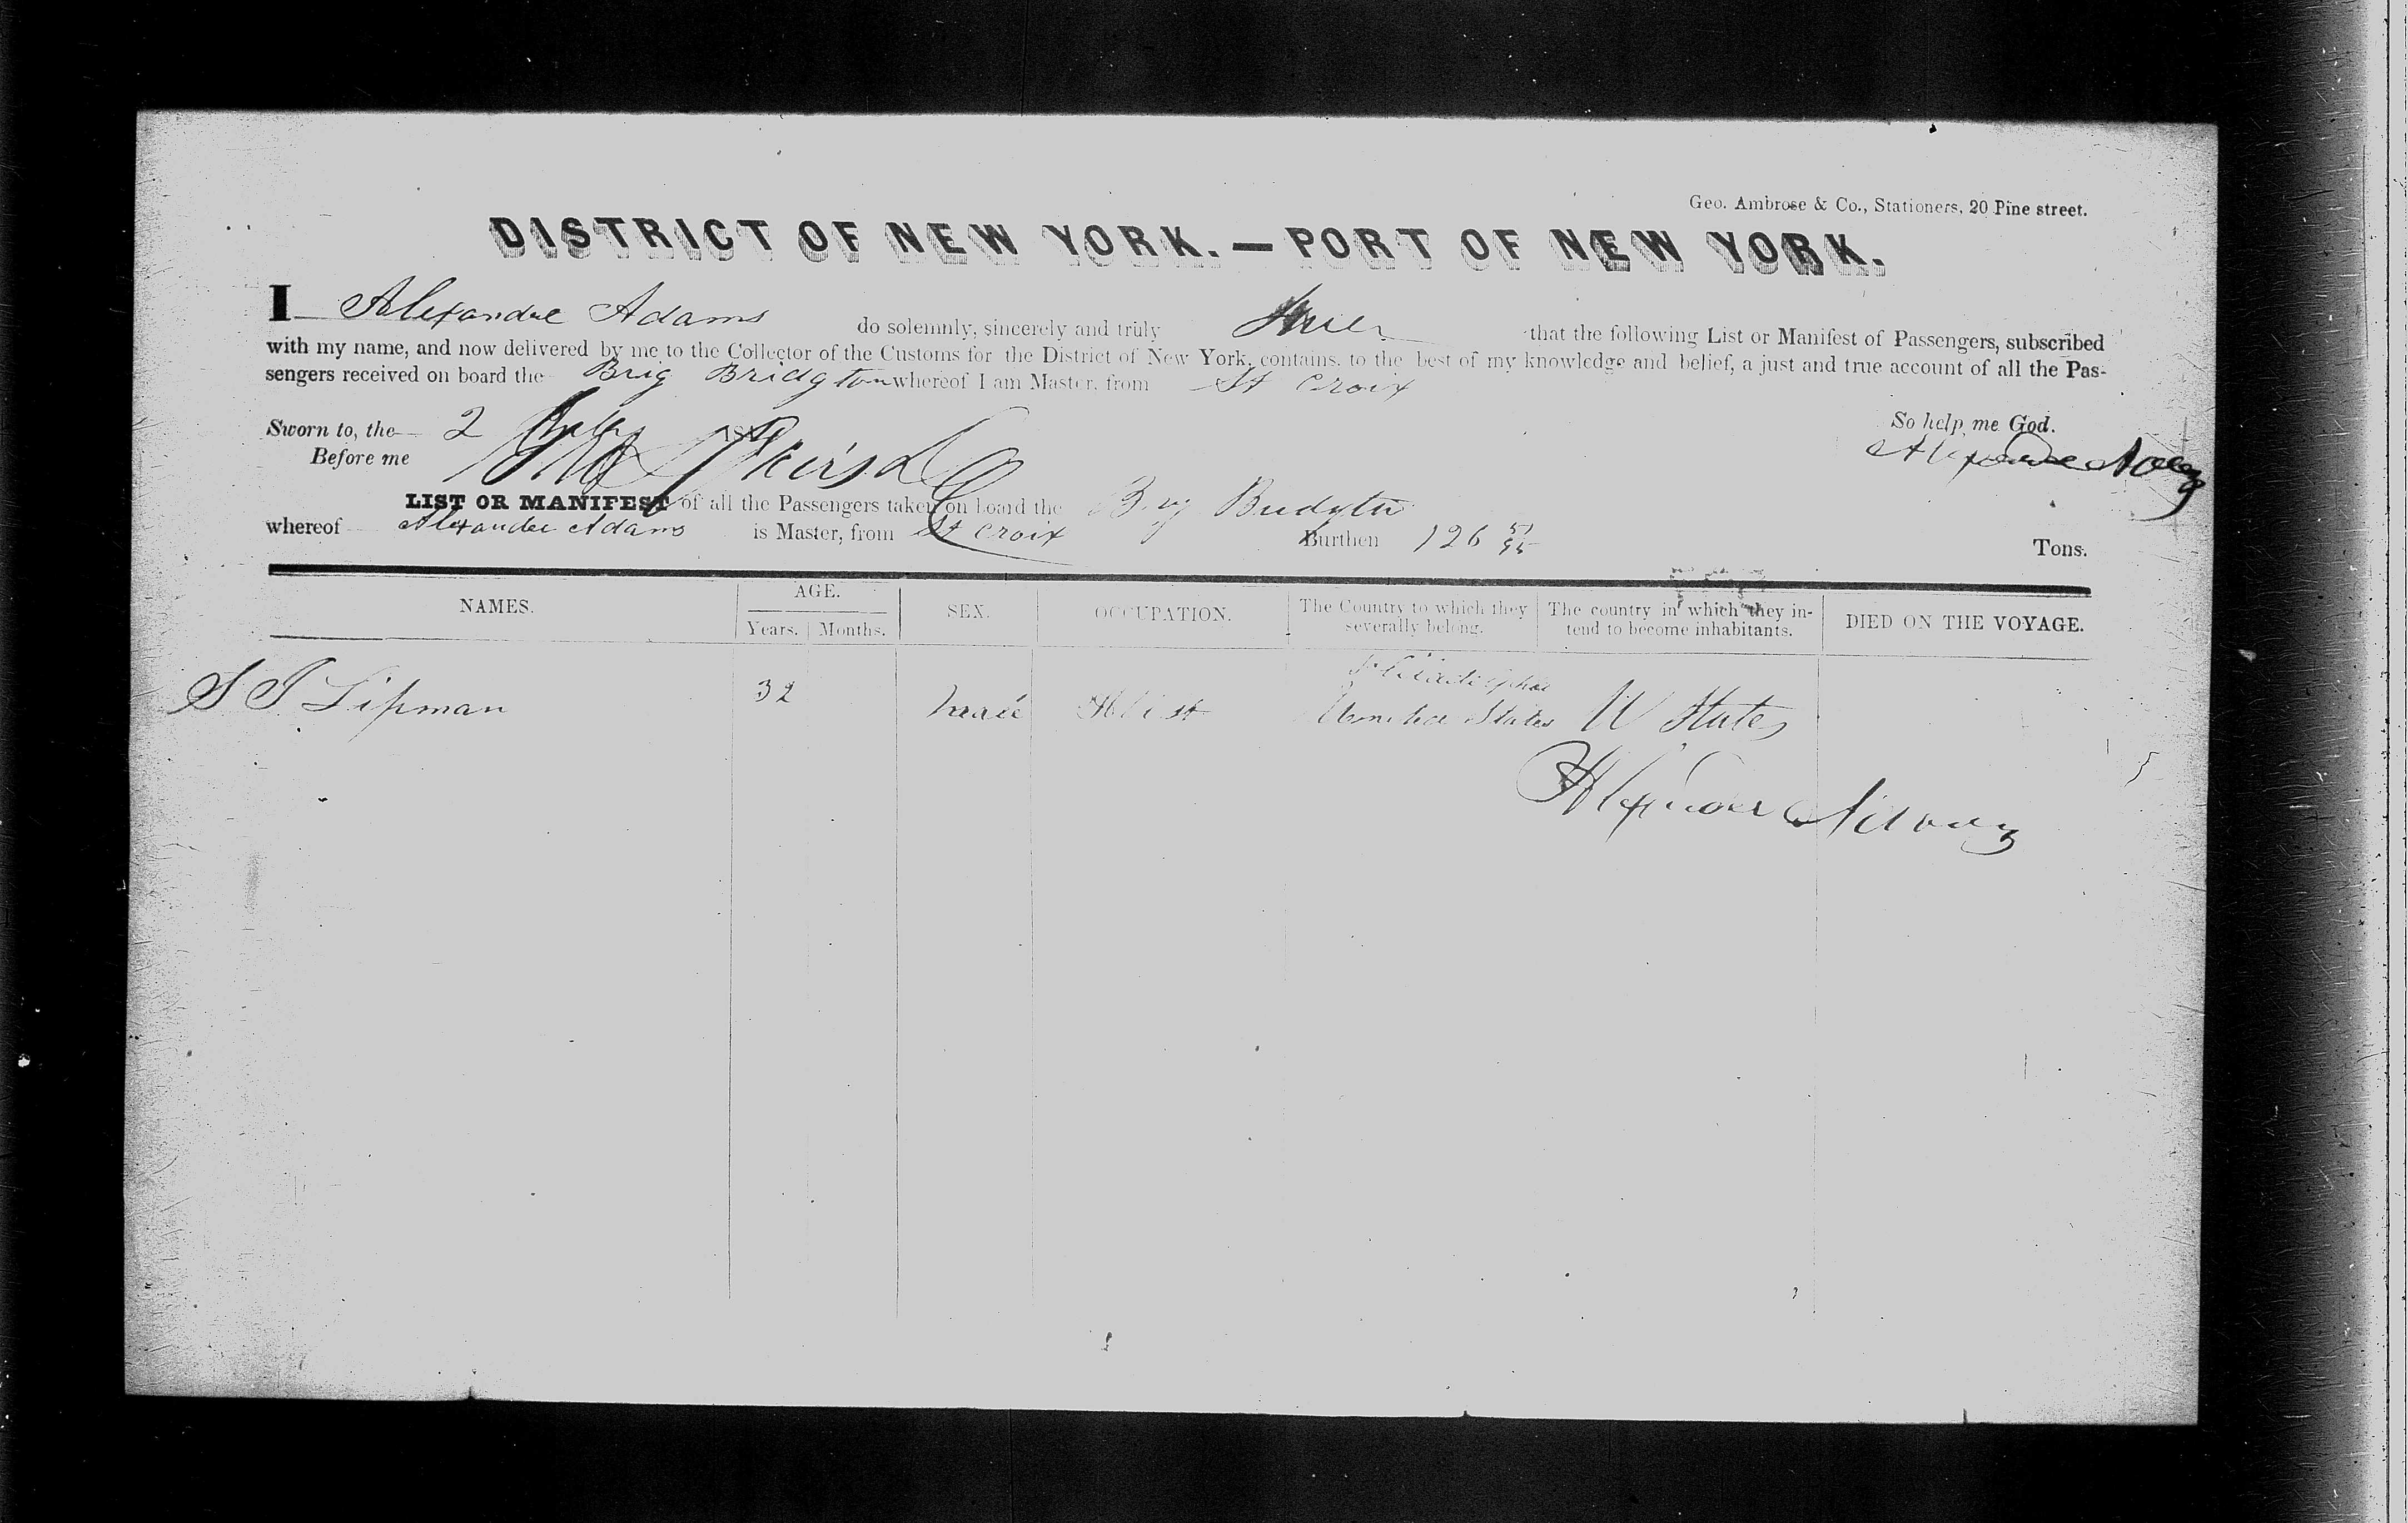 Geo. Ambrose & Co., Stationers, 20 Pine street.
DISTRICT OF NEW YORK.—PORT OF NEW YORK.
I Alexander Adams do solemnly, sincerely and truly that the following List or Manifest of Passengers, subscribed
with my name, and now delivered by me to the Collector of the Customs for the District of New York, contains, to the best of my knowledge and belief, a just and true account of all the Pas-
sengers received on board the Brig Bridgton whereof I am Master, from St Croix
So help me God.
Sworn to, the 2
Before me
Alexander Adams
LIST OR MANIFEST of all the Passengers taken on board the Brig Bridgton
whereof Alexander Adams is Master, from St Croix Burthen 126 Tons.
NAMES. AGE. Years. Months. SEX. OCCUPATION. The Country to which they severally belong. The country in which they in-tend to become inhabitants. DIED ON THE VOYAGE.
Philadelphia
S J Lipman 32 male States U States
Alexander Adams